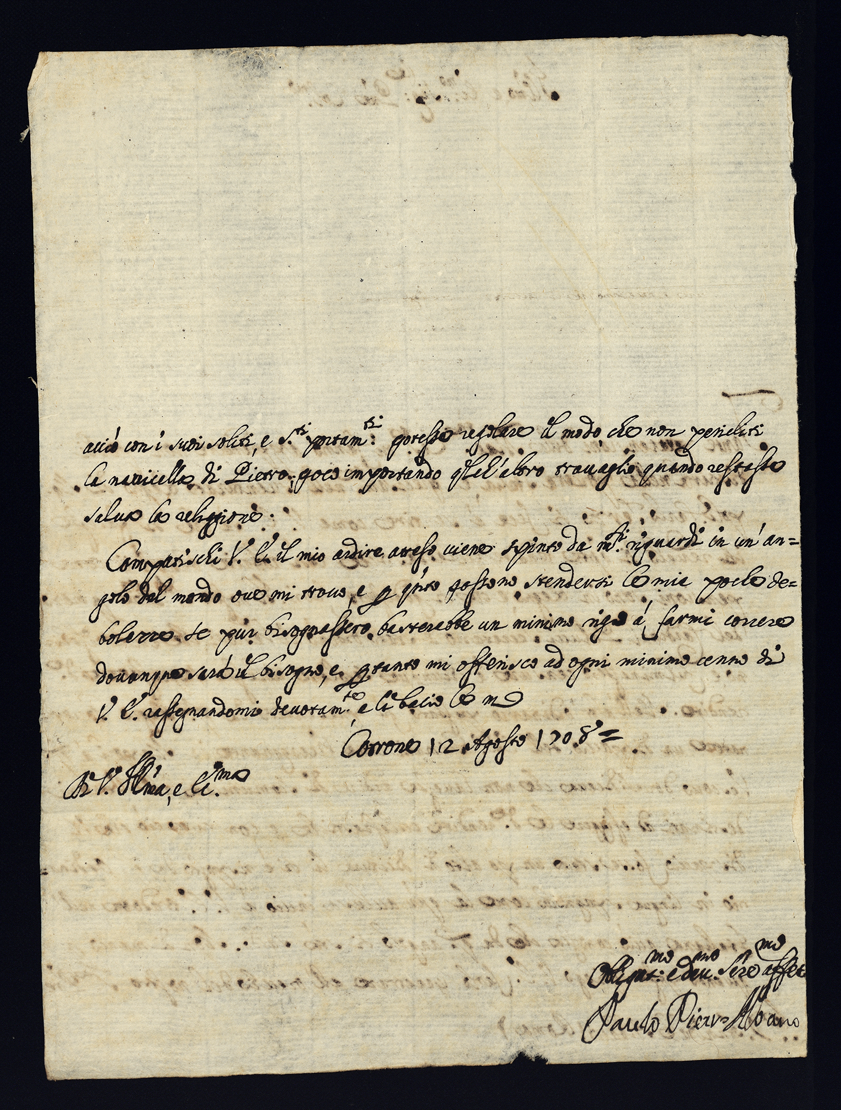 acciò con i suoi soliti, e s.ti portam.ti: potesse regolare il modo, che non pericliti
la navicella di Pietro, poco importando qlch'altro travaglio quando restasse
salva la religgione.
Compatischi V. E. il mio ardire atteso viene spinto da m.ti riguardi in un'an=
golo del mondo ove mi trovo, e p q.to possono stendersi le mie poche de=
bolezze se pur bisognassero, basterebbe un minimo rigo á farmi correre
dovunque sará il bisogno, e, p tanto mi offerisco ad ogni minimo cenno di
V. E. rassegnandomi devotam.te e li bacio le m
Cotrone 12 Agosto 1708=
Di V. Ill.ma, e
Obligat.mo e dev.mo Ser.e aff.mo
Paulo Pietro